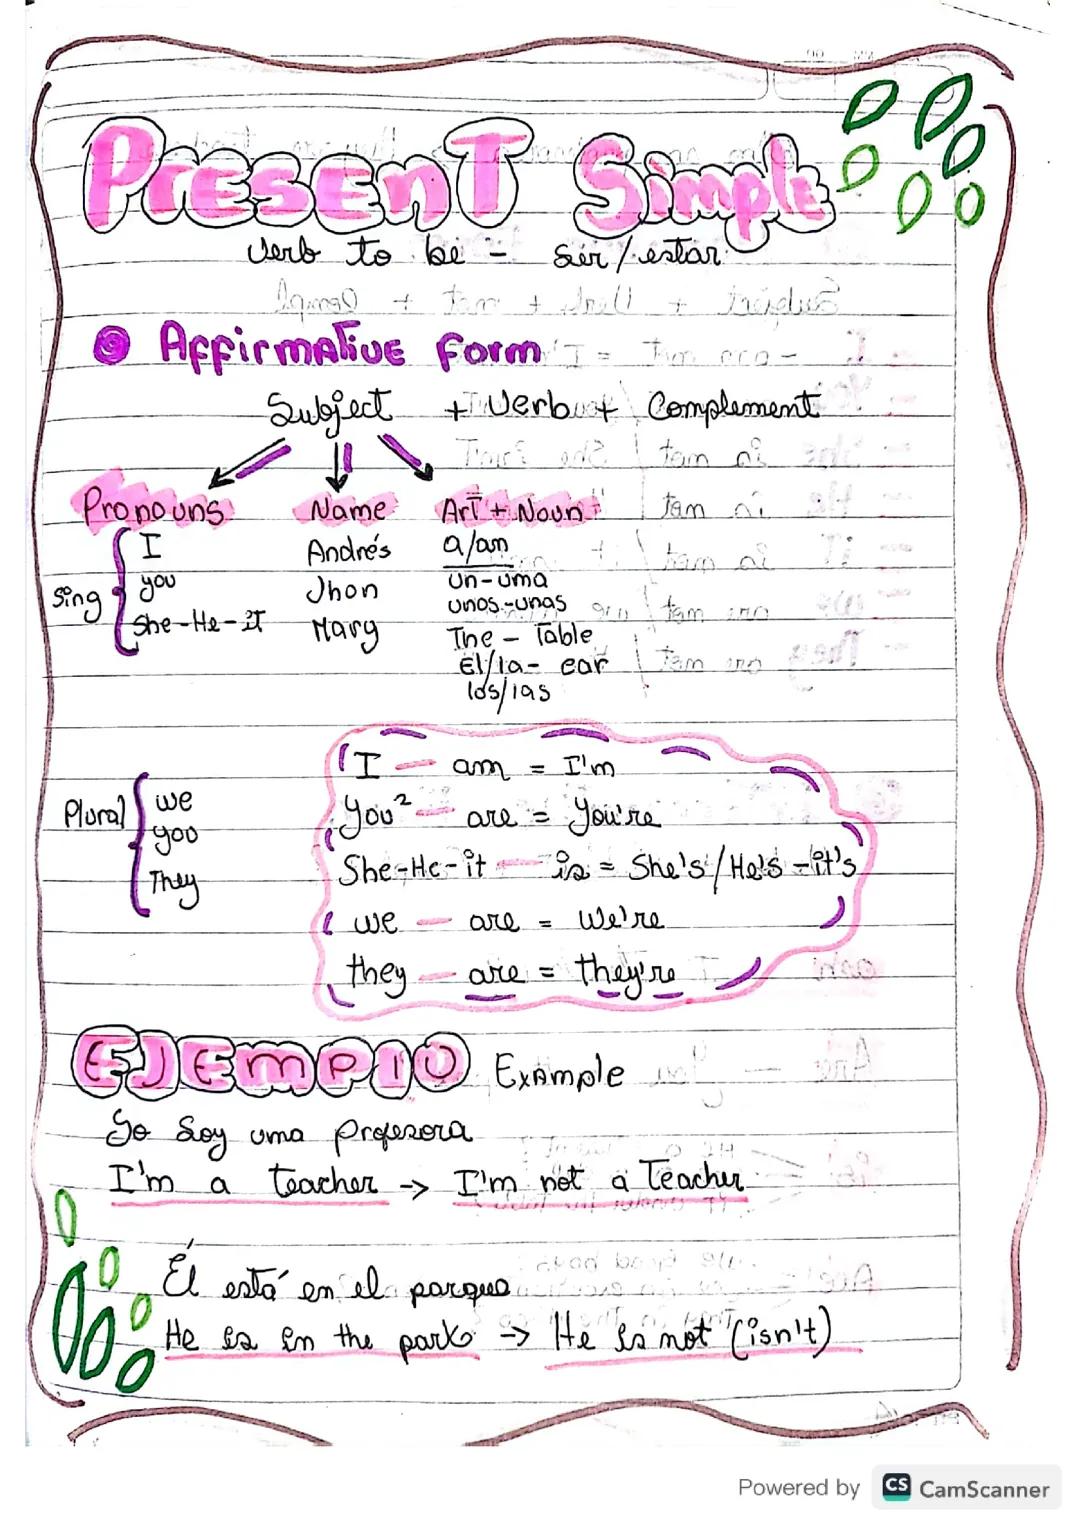 Present Simple
Verb to be - ser/estar
Affirmative Form
Subject + Verb + Complement
Pronouns Name Art + Noun
Sing I Andrés a/an
you Jhon un-una
unos-unas
She-He-it Mary The - Table
El/la- car
los/las
I - am = I'm
Plural we
you² - are = You're
you
She-He-it - is = She's/He's-it's
They
we - are = We're
they - are = they're
EJEMPlO Example
Yo Soy una profesora
I'm a teacher → I'm not a Teacher
Él está en el parque
He is in the park → He is not (isn't)
Powered by CS CamScanner